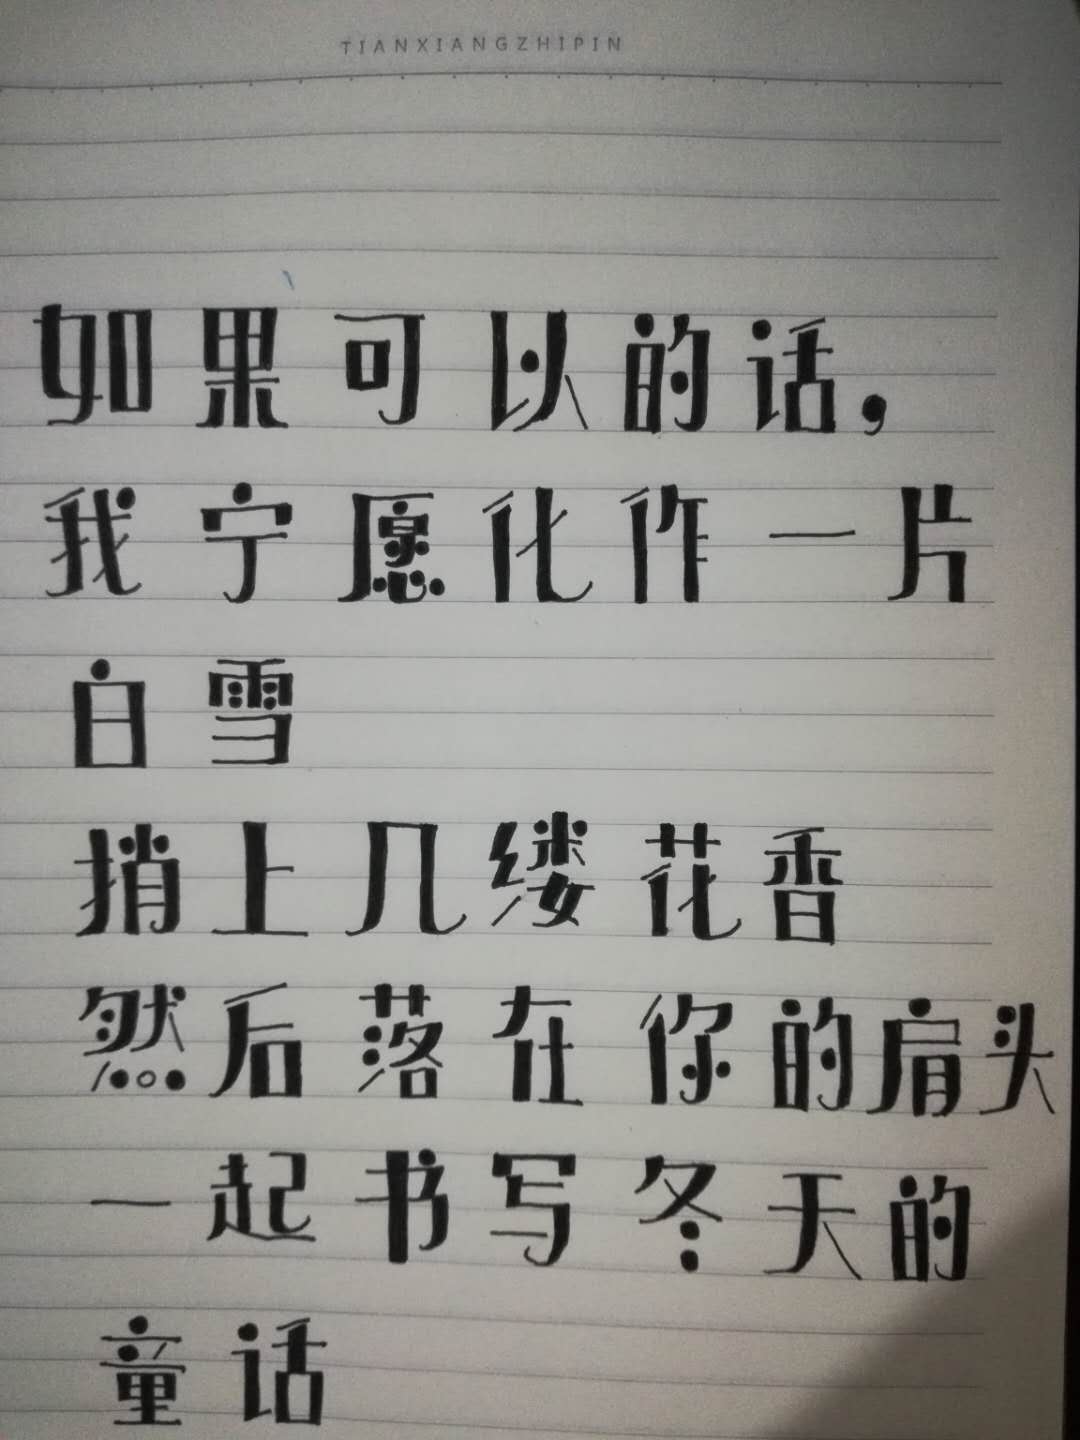 TIANXIANGZHIPIN
如果可以的话,
我宁愿化作一片
白雪
捎上几缕花香
然后落在你的肩头
一起书写冬天的
童话